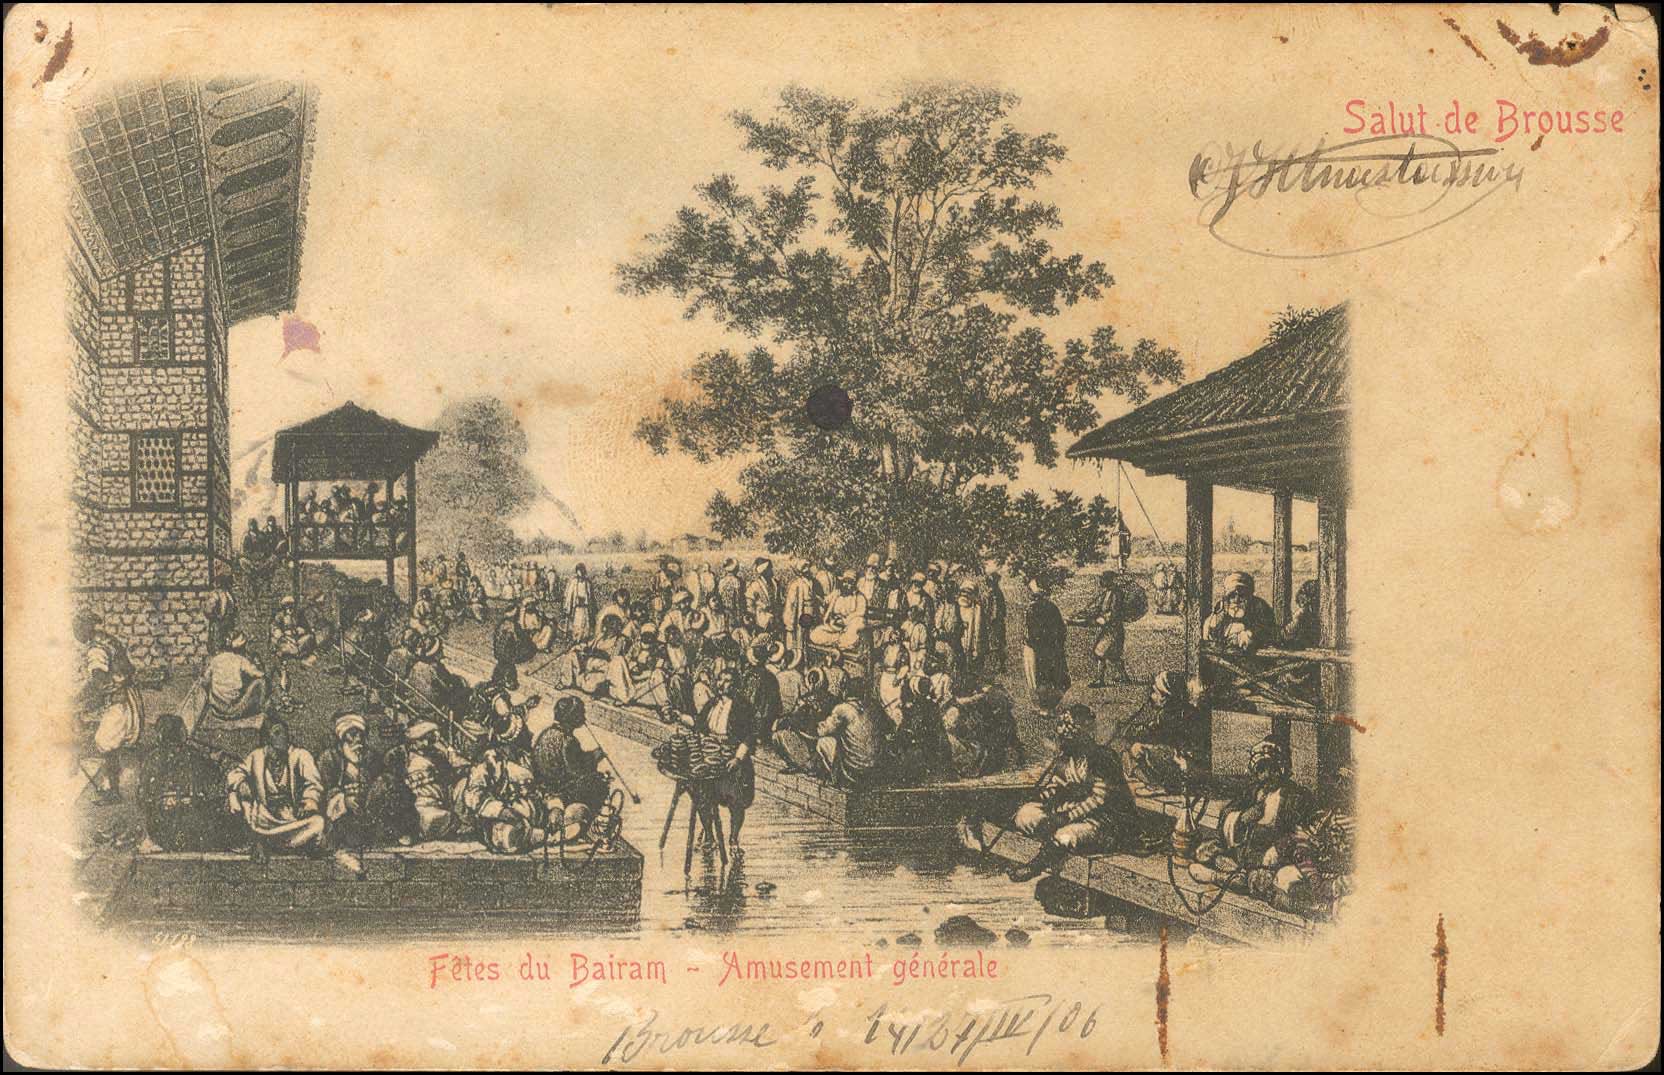 Salut de Brousse
Fêtes du Bairam - Amusement générale
Brousse 14/27/IV/06